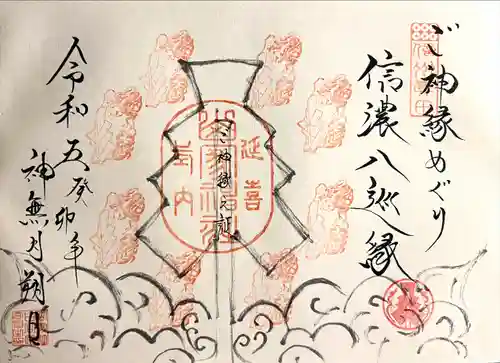 ご神縁めぐり
信濃八巡縁
延喜
式内
ご神縁之証
令和五癸卯年
神無月朔日